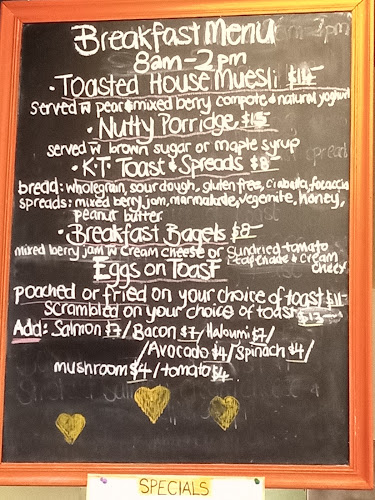 Breakfast Menu
8am-2pm
• Toasted House Muesli $14-
served w pear & mixed berry compote & natural yoghurt
• Nutty Porridge $15-
served w brown sugar or maple syrup
• K.T. Toast & Spreads $8-
bread: wholegrain, sourdough, gluten free, ciabatta, focaccia
spreads: mixed berry jam, marmalade, vegemite, honey,
peanut butter
• Breakfast Bagels $8-
mixed berry jam w cream cheese or sundried tomato
tapenade & cream
cheese
Eggs on Toast
poached or fried on your choice of toast $11-
scrambled on your choice of toast $13-
Add: Salmon $7/ Bacon $7/ Haloumi $7/
/Avocado $4/ Spinach $4/
mushroom $4/ tomato $4
SPECIALS